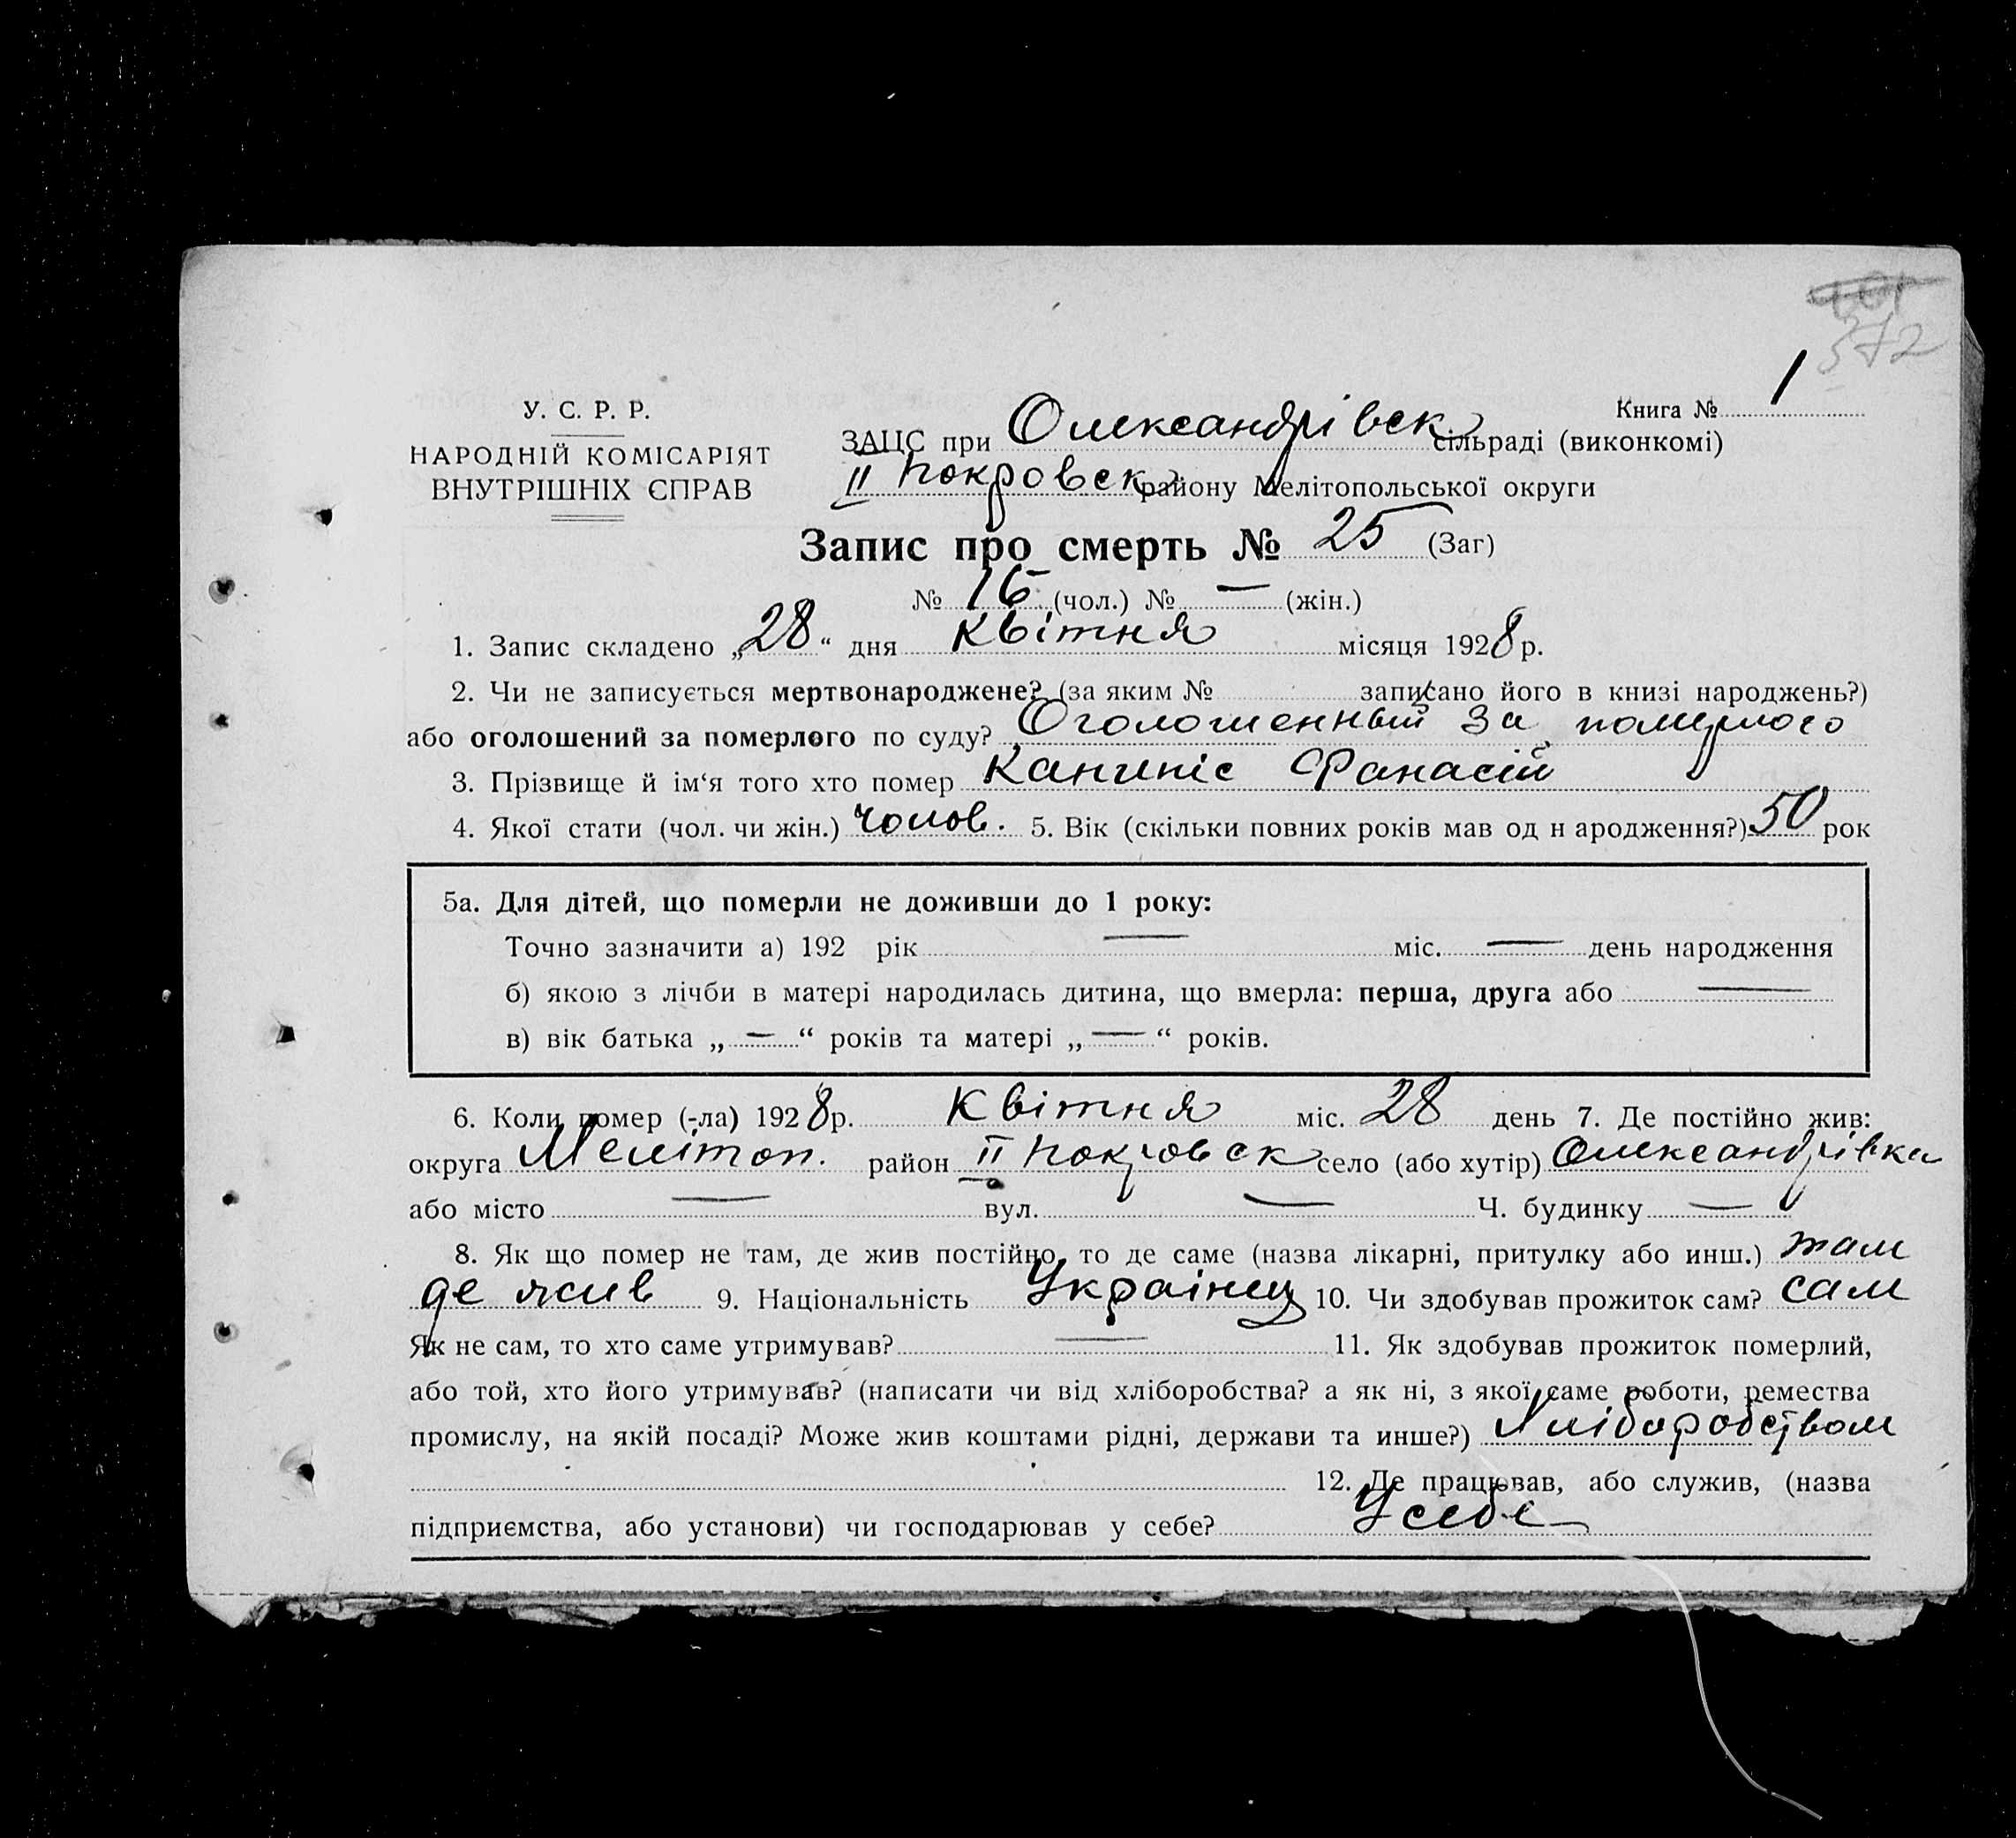 372
Книга № 1
У. С. Р. Р.
НАРОДНІЙ КОМІСАРІЯТ
ВНУТРІШНІХ ЄПРАВ
ЗАЦС при Олександрівск сільраді (виконкомі)
II Покровск району Мелітопольської округи
Запис про смерть № 25 (Заг)
№ 16 (чол.) № — (жін.)
1. Запис складено „28“ дня квітня місяця 1928 р.
2. Чи не записується мертвонароджене? (за яким № записано його в книзі народжень?)
або оголошений за померлого по суду? Оголошенный за помершого
3. Прізвище й ім‘я того хто помер Фанасій
4. Якої стати (чол. чи жін.) чолов. 5. Вік (скільки повних років мав од н ародження?) 50 рок
5а. Для дітей, що померли не доживши до 1 року:
Точно зазначити а) 192 рік — міс. — день народження
б) якою з лічби в матері народилась дитина, що вмерла: перша, друга або —
в) вік батька „—“ років та матері „—“ років.
6. Коли помер (-ла) 1928 р. Квітня міс. 28 день 7. Де постійно жив:
округа Мелітоп. район II Покровск село (або хутір) Олександрівка
або місто — вул. — Ч. будинку —
8. Як що помер не там, де жив постійно, то де саме (назва лікарні, притулку або инш.) там
де жив 9. Національність Українец 10. Чи здобував прожиток сам? сам
Як не сам, то хто саме утримував? — 11. Як здобував прожиток померлий,
або той, хто його утримував? (написати чи від хліборобства? а як ні, з якої саме роботи, ремества
промислу, на якій посаді? Може жив коштами рідні, держави та инше?) Хліборобством
12. Де працював, або служив, (назва
підприємства, або установи) чи господарював у себе? У себе